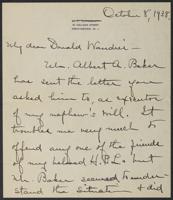 October 8, 1938.
My dear Donald Wandrei -
Mr. Albert A. Baker
has sent the letter your
asked him to, as executor
of my nephew's will. It
troubled me very much to
offend any one of the friends
of my beloved H.P.L. but
Mr. Baker seemed to under-
stand the situation & did